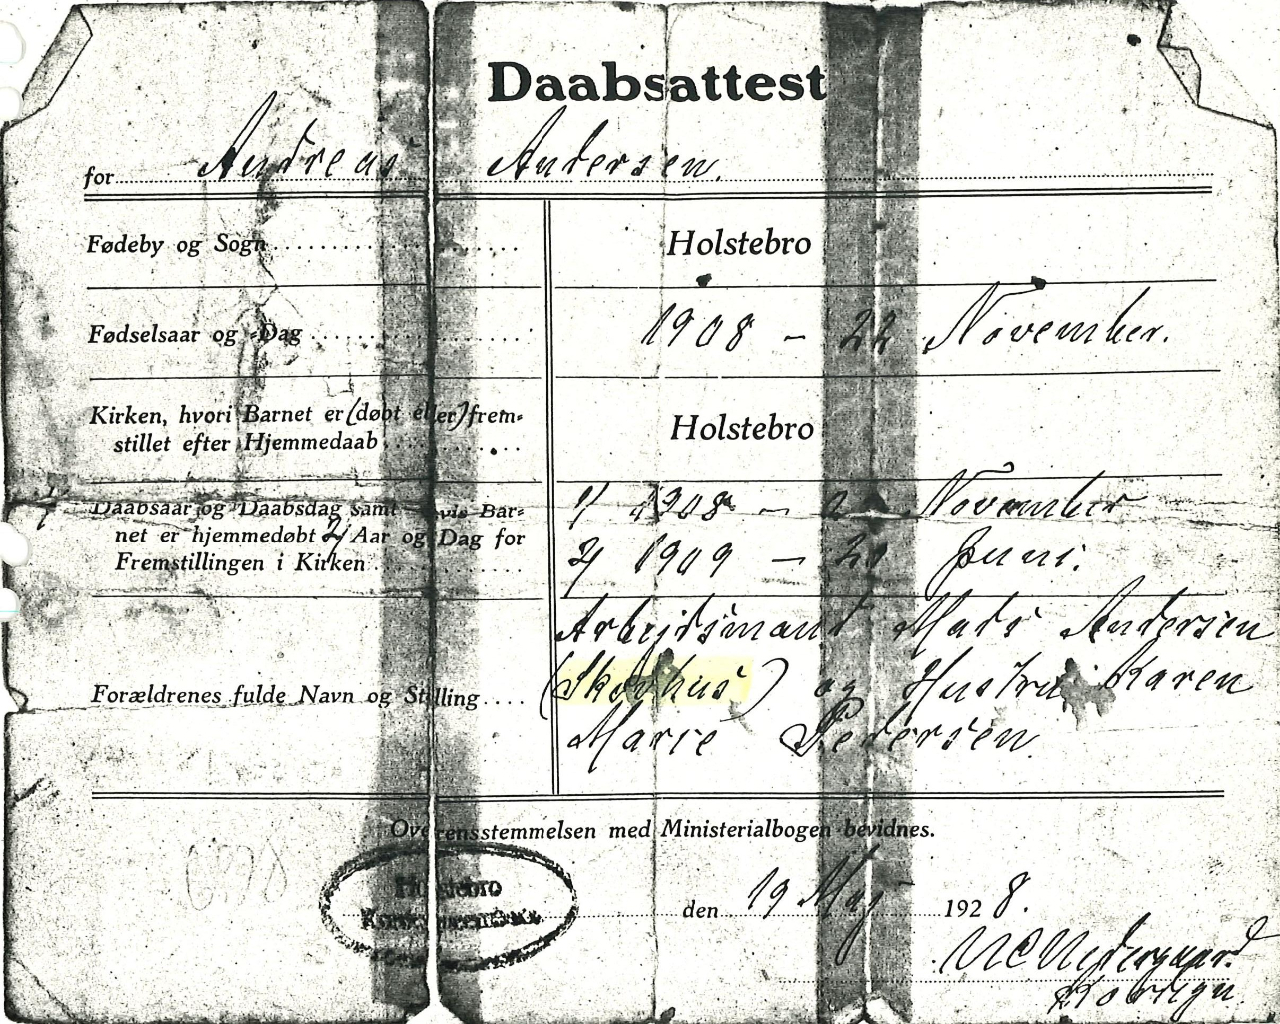 Daabsattest
for Andreas Andersen.
Fødeby og Sogn Holstebro
Fødselsaar og =Dag 1908 – 22 November.
Kirken, hvori Barnet er (døbt eller) frem=
stillet efter Hjemmedaab Holstebro
Daabsaar og Daabsdag samt hvis Bar= 1) 1908 – November
net er hjemmedøbt 2) Aar og Dag for
Fremstillingen i Kirken 2) 1909 – 20 Juni.
Arbejdsmand Mads Andersen
Forældrenes fulde Navn og Stilling (Skovhus) og Hustru Karen
Marie Pedersen
Overensstemmelsen med Ministerialbogen bevidnes.
Holstebro
den 19 Maj 1928.